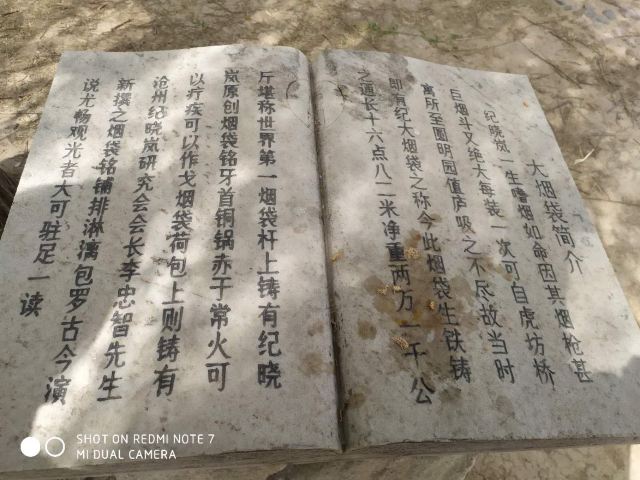 大烟袋简介
纪晓岚一生嗜烟如命因其烟枪甚
巨烟斗又绝大每装一次可自虎坊桥
寓所至圆明园值庐吸之不尽故当时
即有纪大烟袋之称今此烟袋生铁铸
之通长十六点八二米净重两万一千公
斤堪称世界第一烟袋杆上铸有纪晓
岚原创烟袋铭牙首铜锅赤于常火可
以疗疾可以作戈烟袋荷包上则铸有
沧州纪晓岚研究会会长李忠智先生
新撰之烟袋铭铺排淋漓包罗古今演
说尤畅观光者大可驻足一读
SHOT ON REDMI NOTE 7
MI DUAL CAMERA